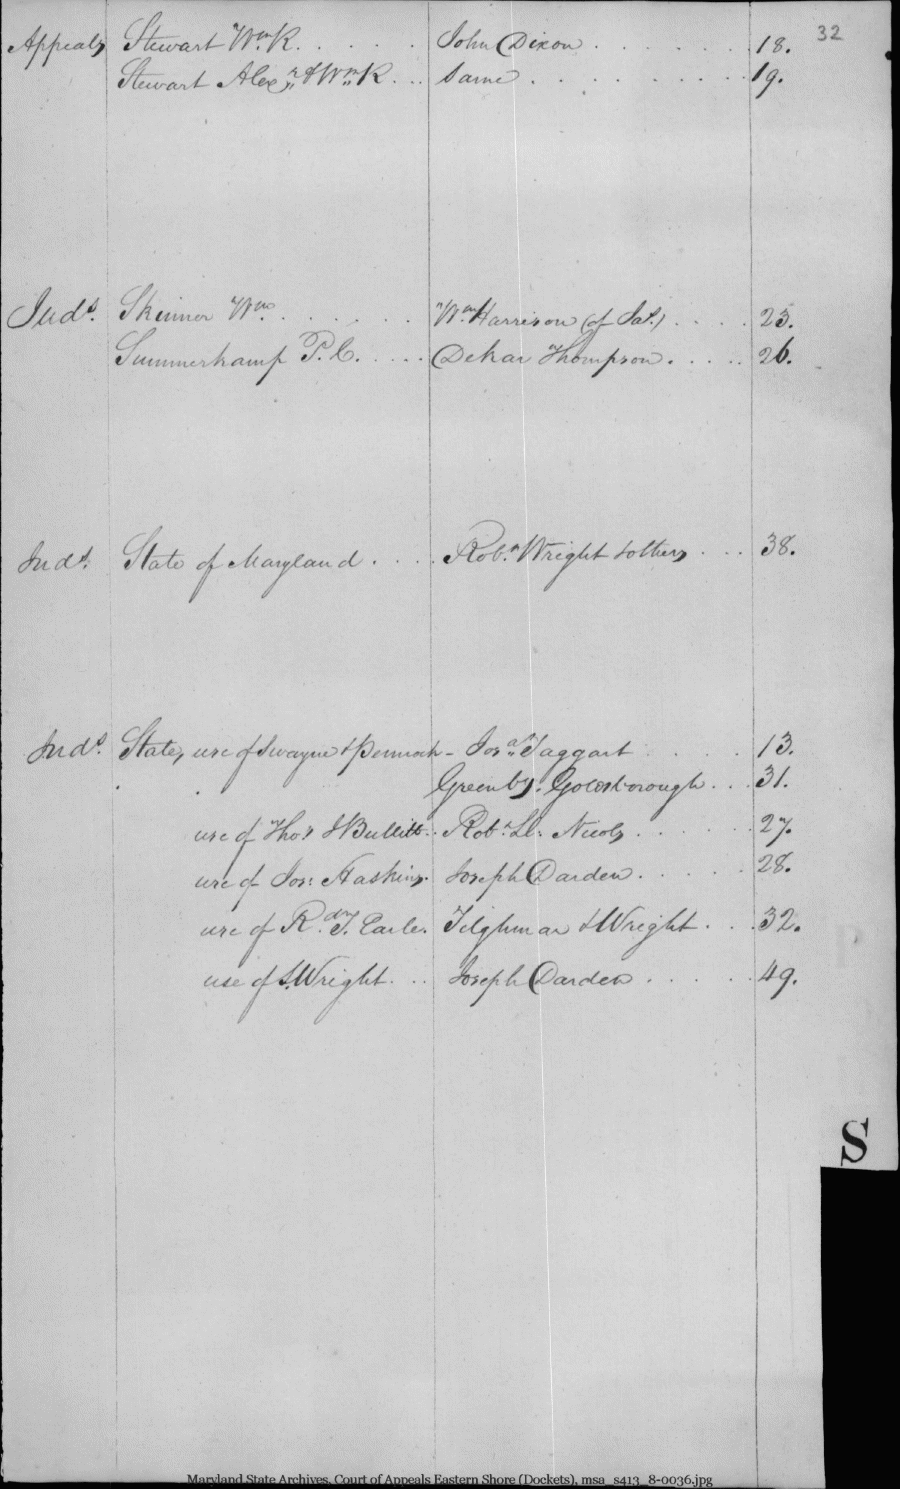 32
Appeals Stewart Wm. K. . . . . . John Dixon . . . . . . . 18.
Stewart Alexr. & Wm. K . . . same . . . . . . . . . . 19.
Juds. Skinner Wm. . . . . . . Wm. Harrison (of Jas.) . . . . 23.
Summerkamp P. C. . . . . Dekar Thompson . . . . . 26.
Juds. State of Maryland . . . . Robt. Wright & others . . . 38.
Juds. State, use of Swayne & - Josa. Taggart . . . . . 13.
Greenby. Goldsborough . . . 31.
use of Thos. J Bullitt . . Robt. Ll. Nicols . . . . . . 27.
use of Jos: Haskins. Joseph Darden . . . . . . 28.
use of Rd. T. Earle. Tilghman & Wright . . . 32.
use of S. Wright . . . Joseph Darden . . . . . . 49.
S
Maryland State Archives, Court of Appeals Eastern Shore (Dockets), msa_s413_8-0036.jpg